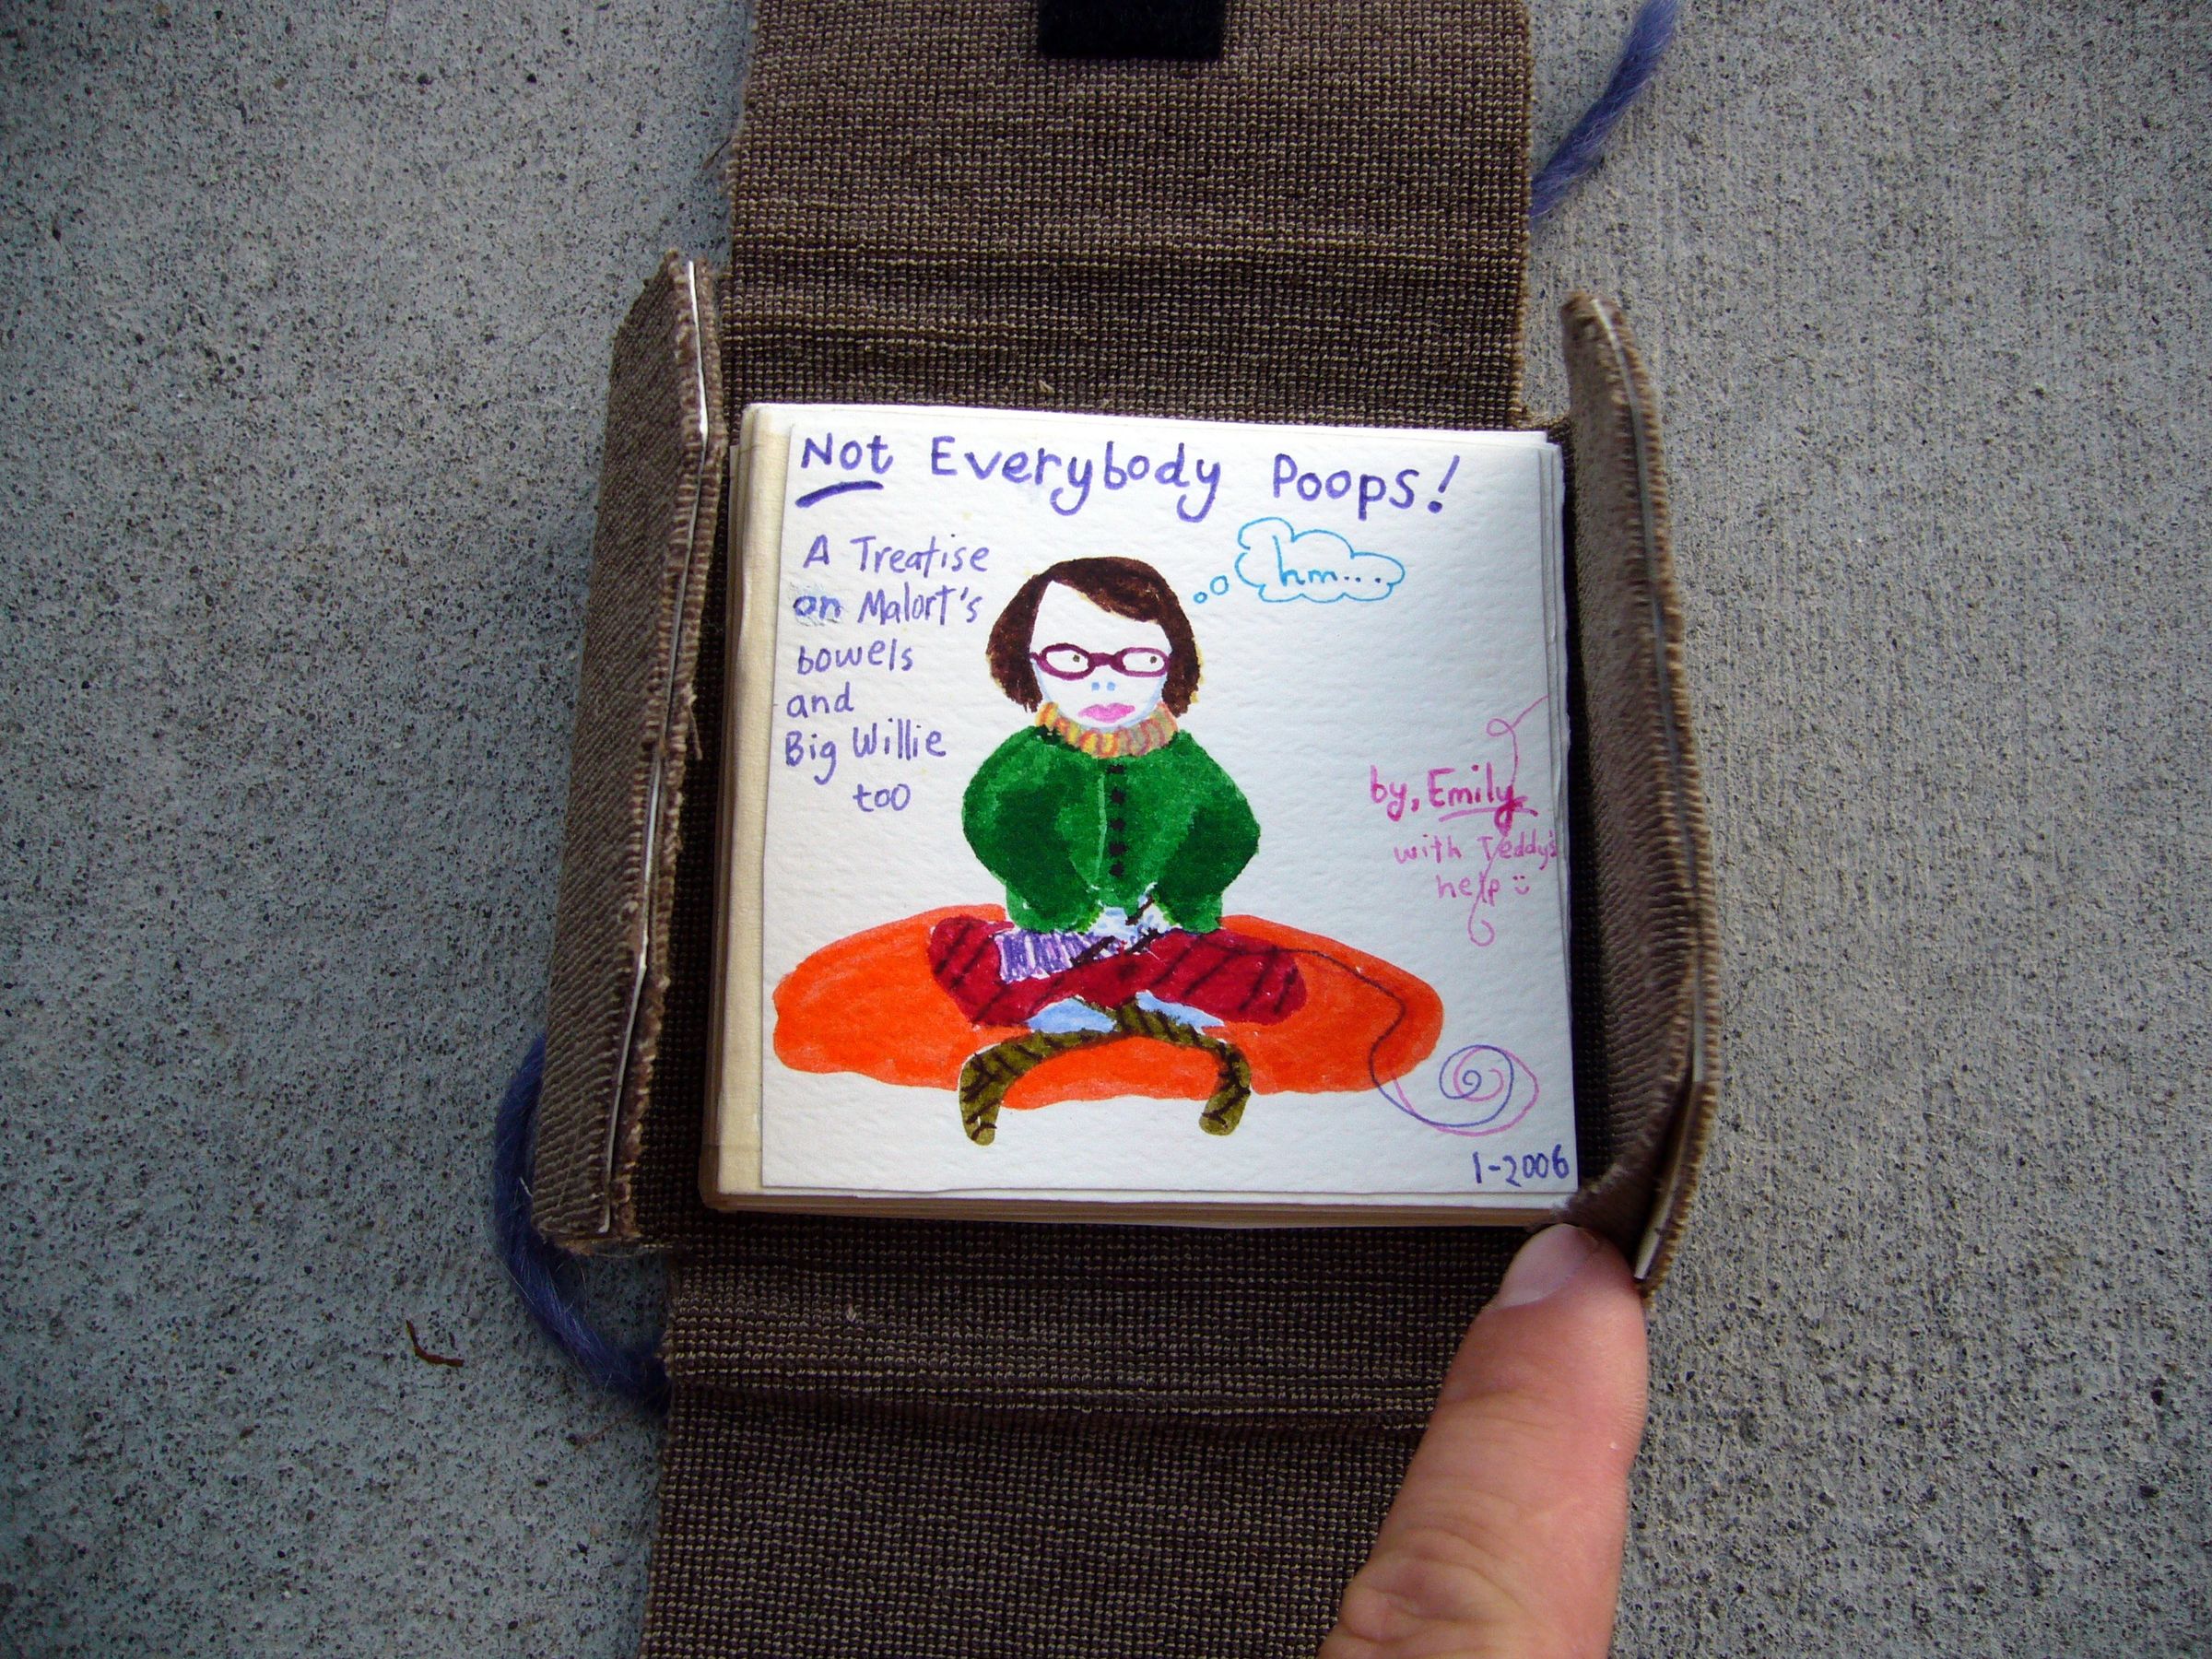 Not Everybody Poops!
A Treatise
on Malort's
bowels
and
Big Willie
too
hm...
by, Emily
with Teddy's
help
1-2006